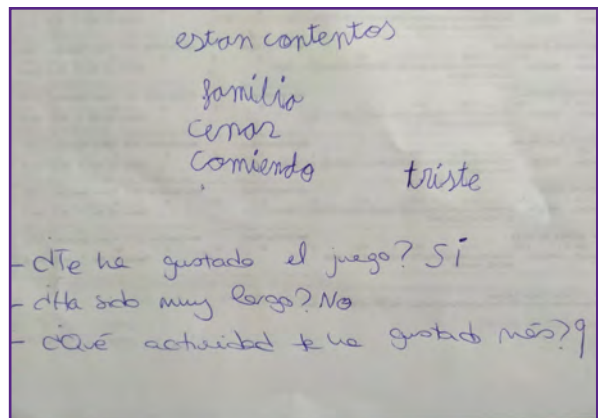 estan contentos
familia
cenar
comiendo triste
- ¿Te ha gustado el juego? Sí
- ¿Ha sido muy largo? No
- ¿Qué actividad te ha gustado más? 9